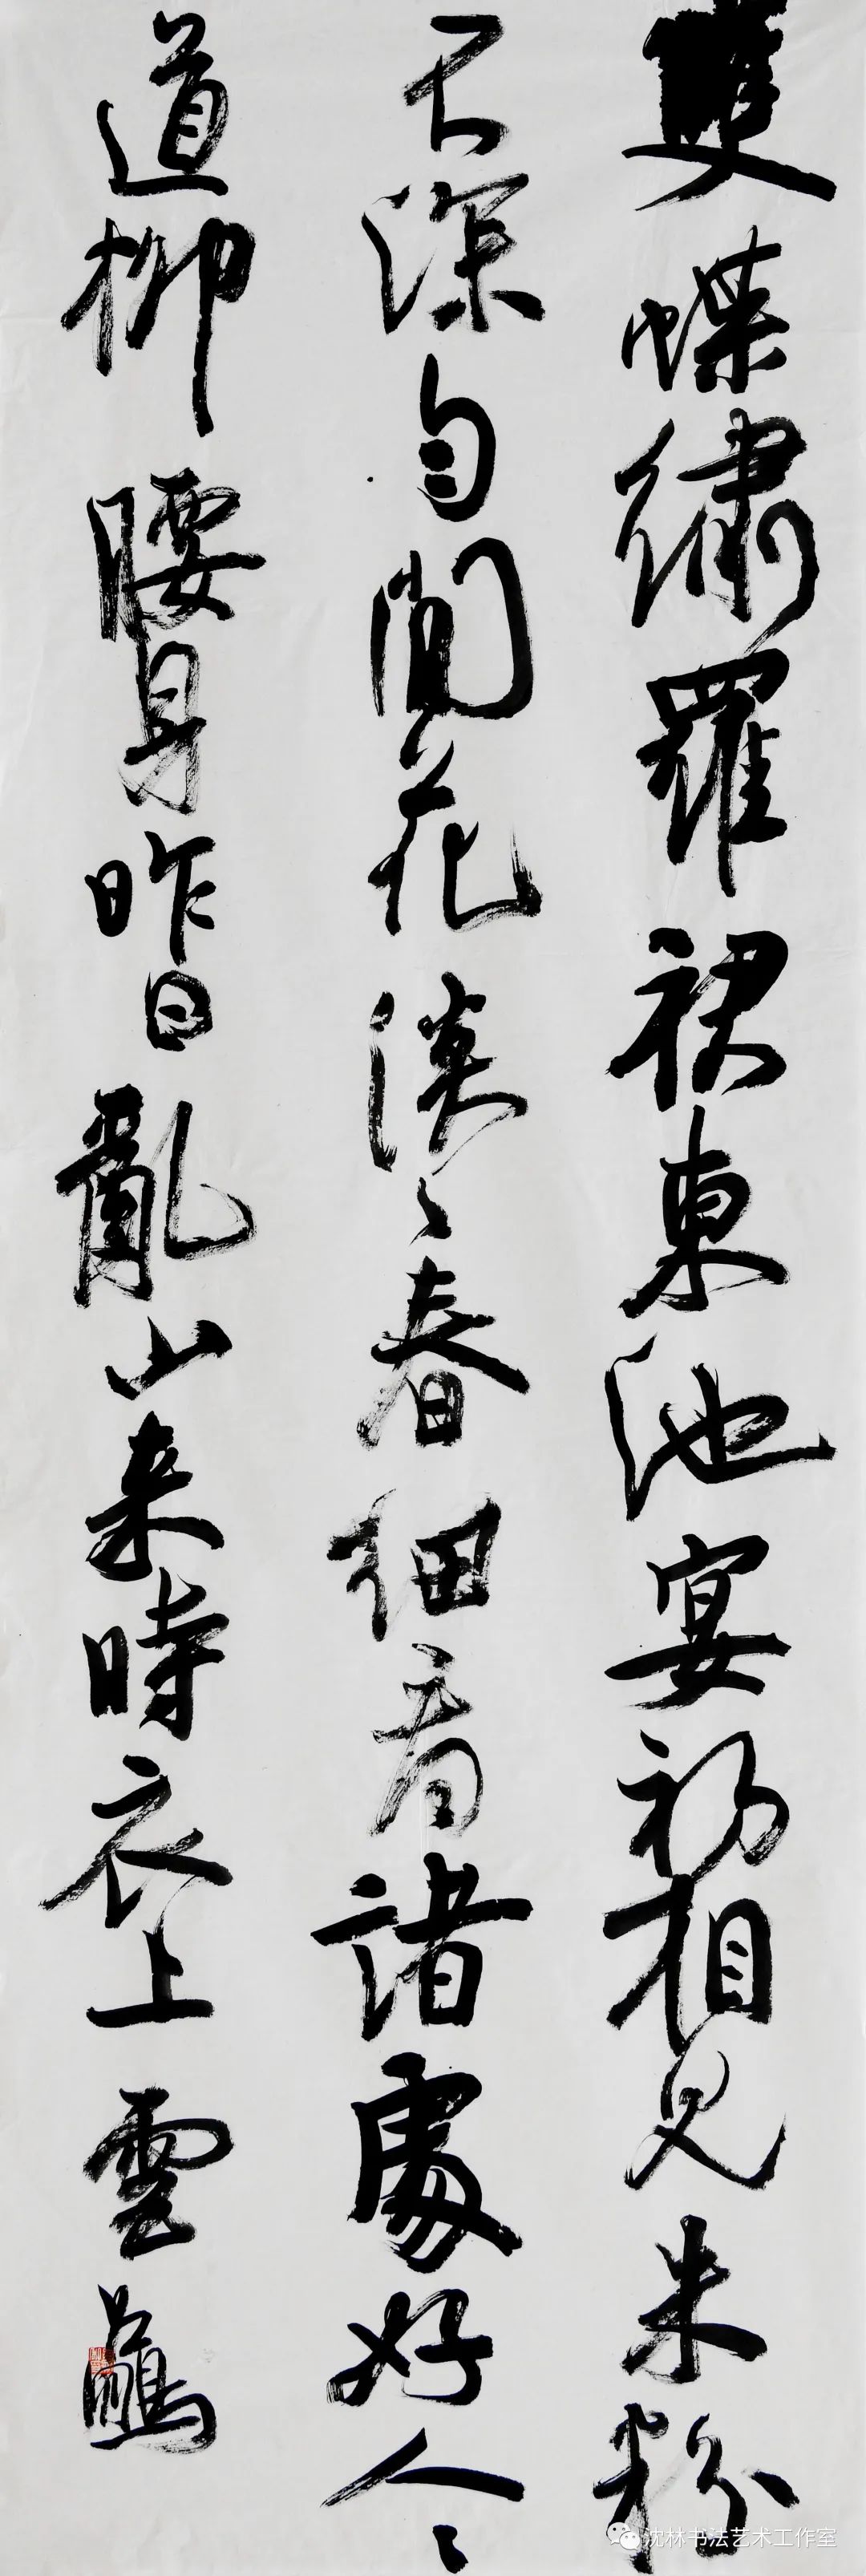 雙蝶繡羅裙東池宴初相見朱粉
不深匀閒花淡〻春細看諸處好人〻
道柳腰身昨日亂山来時衣上雲
沈林书法艺术工作室